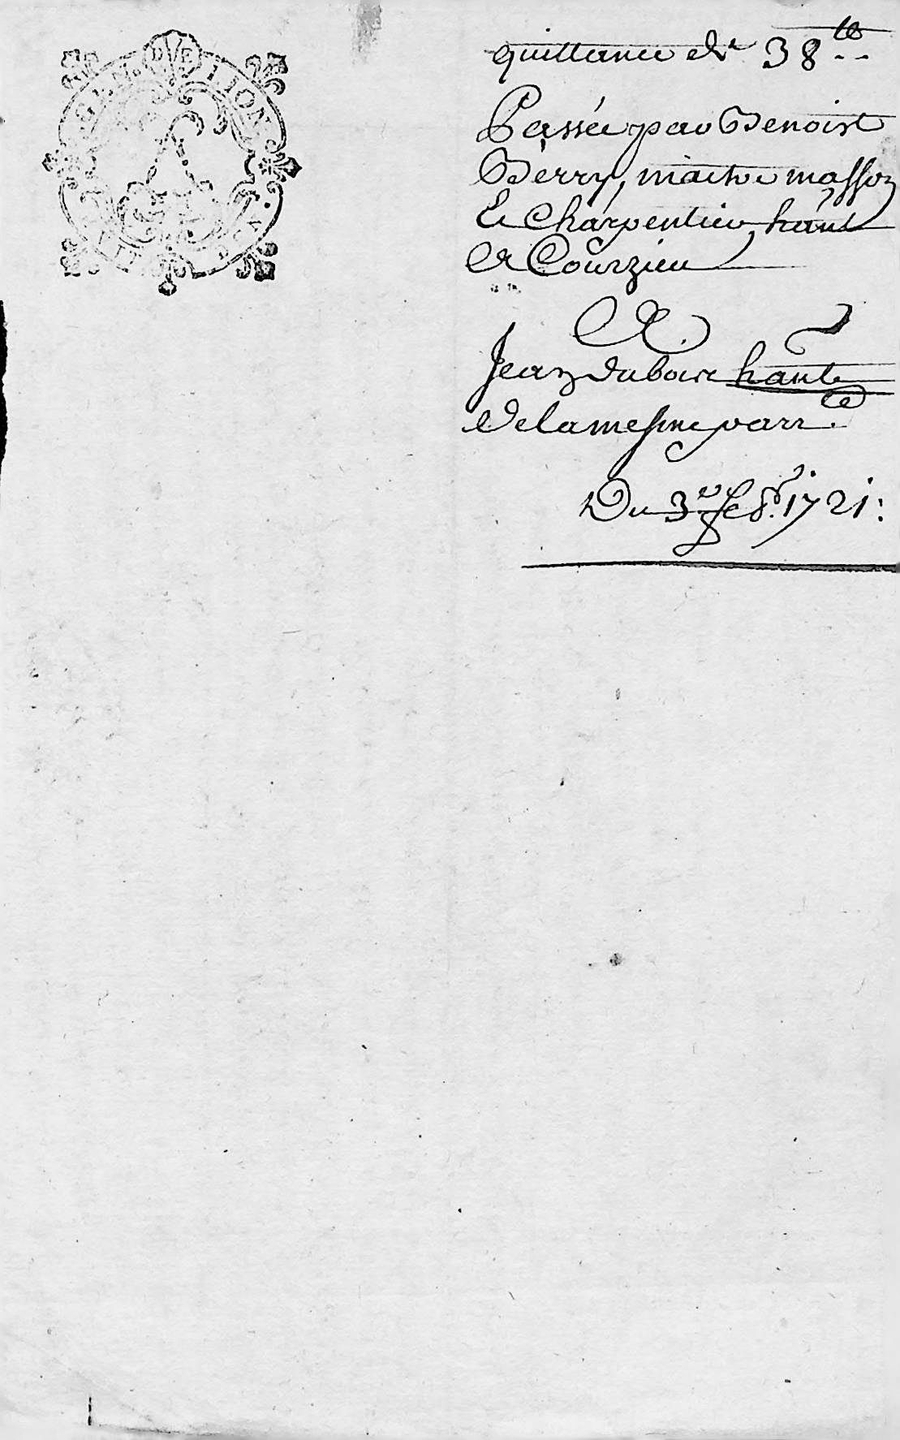 GEN. DE LION
quittance de 38 ₶
Passée par Benoist
Berry, maitre masson
Et Charpentier habant
de Courzieu
A
Jean dubois habant
de la mesme parr.e
Du 3e fe8r. 1721: